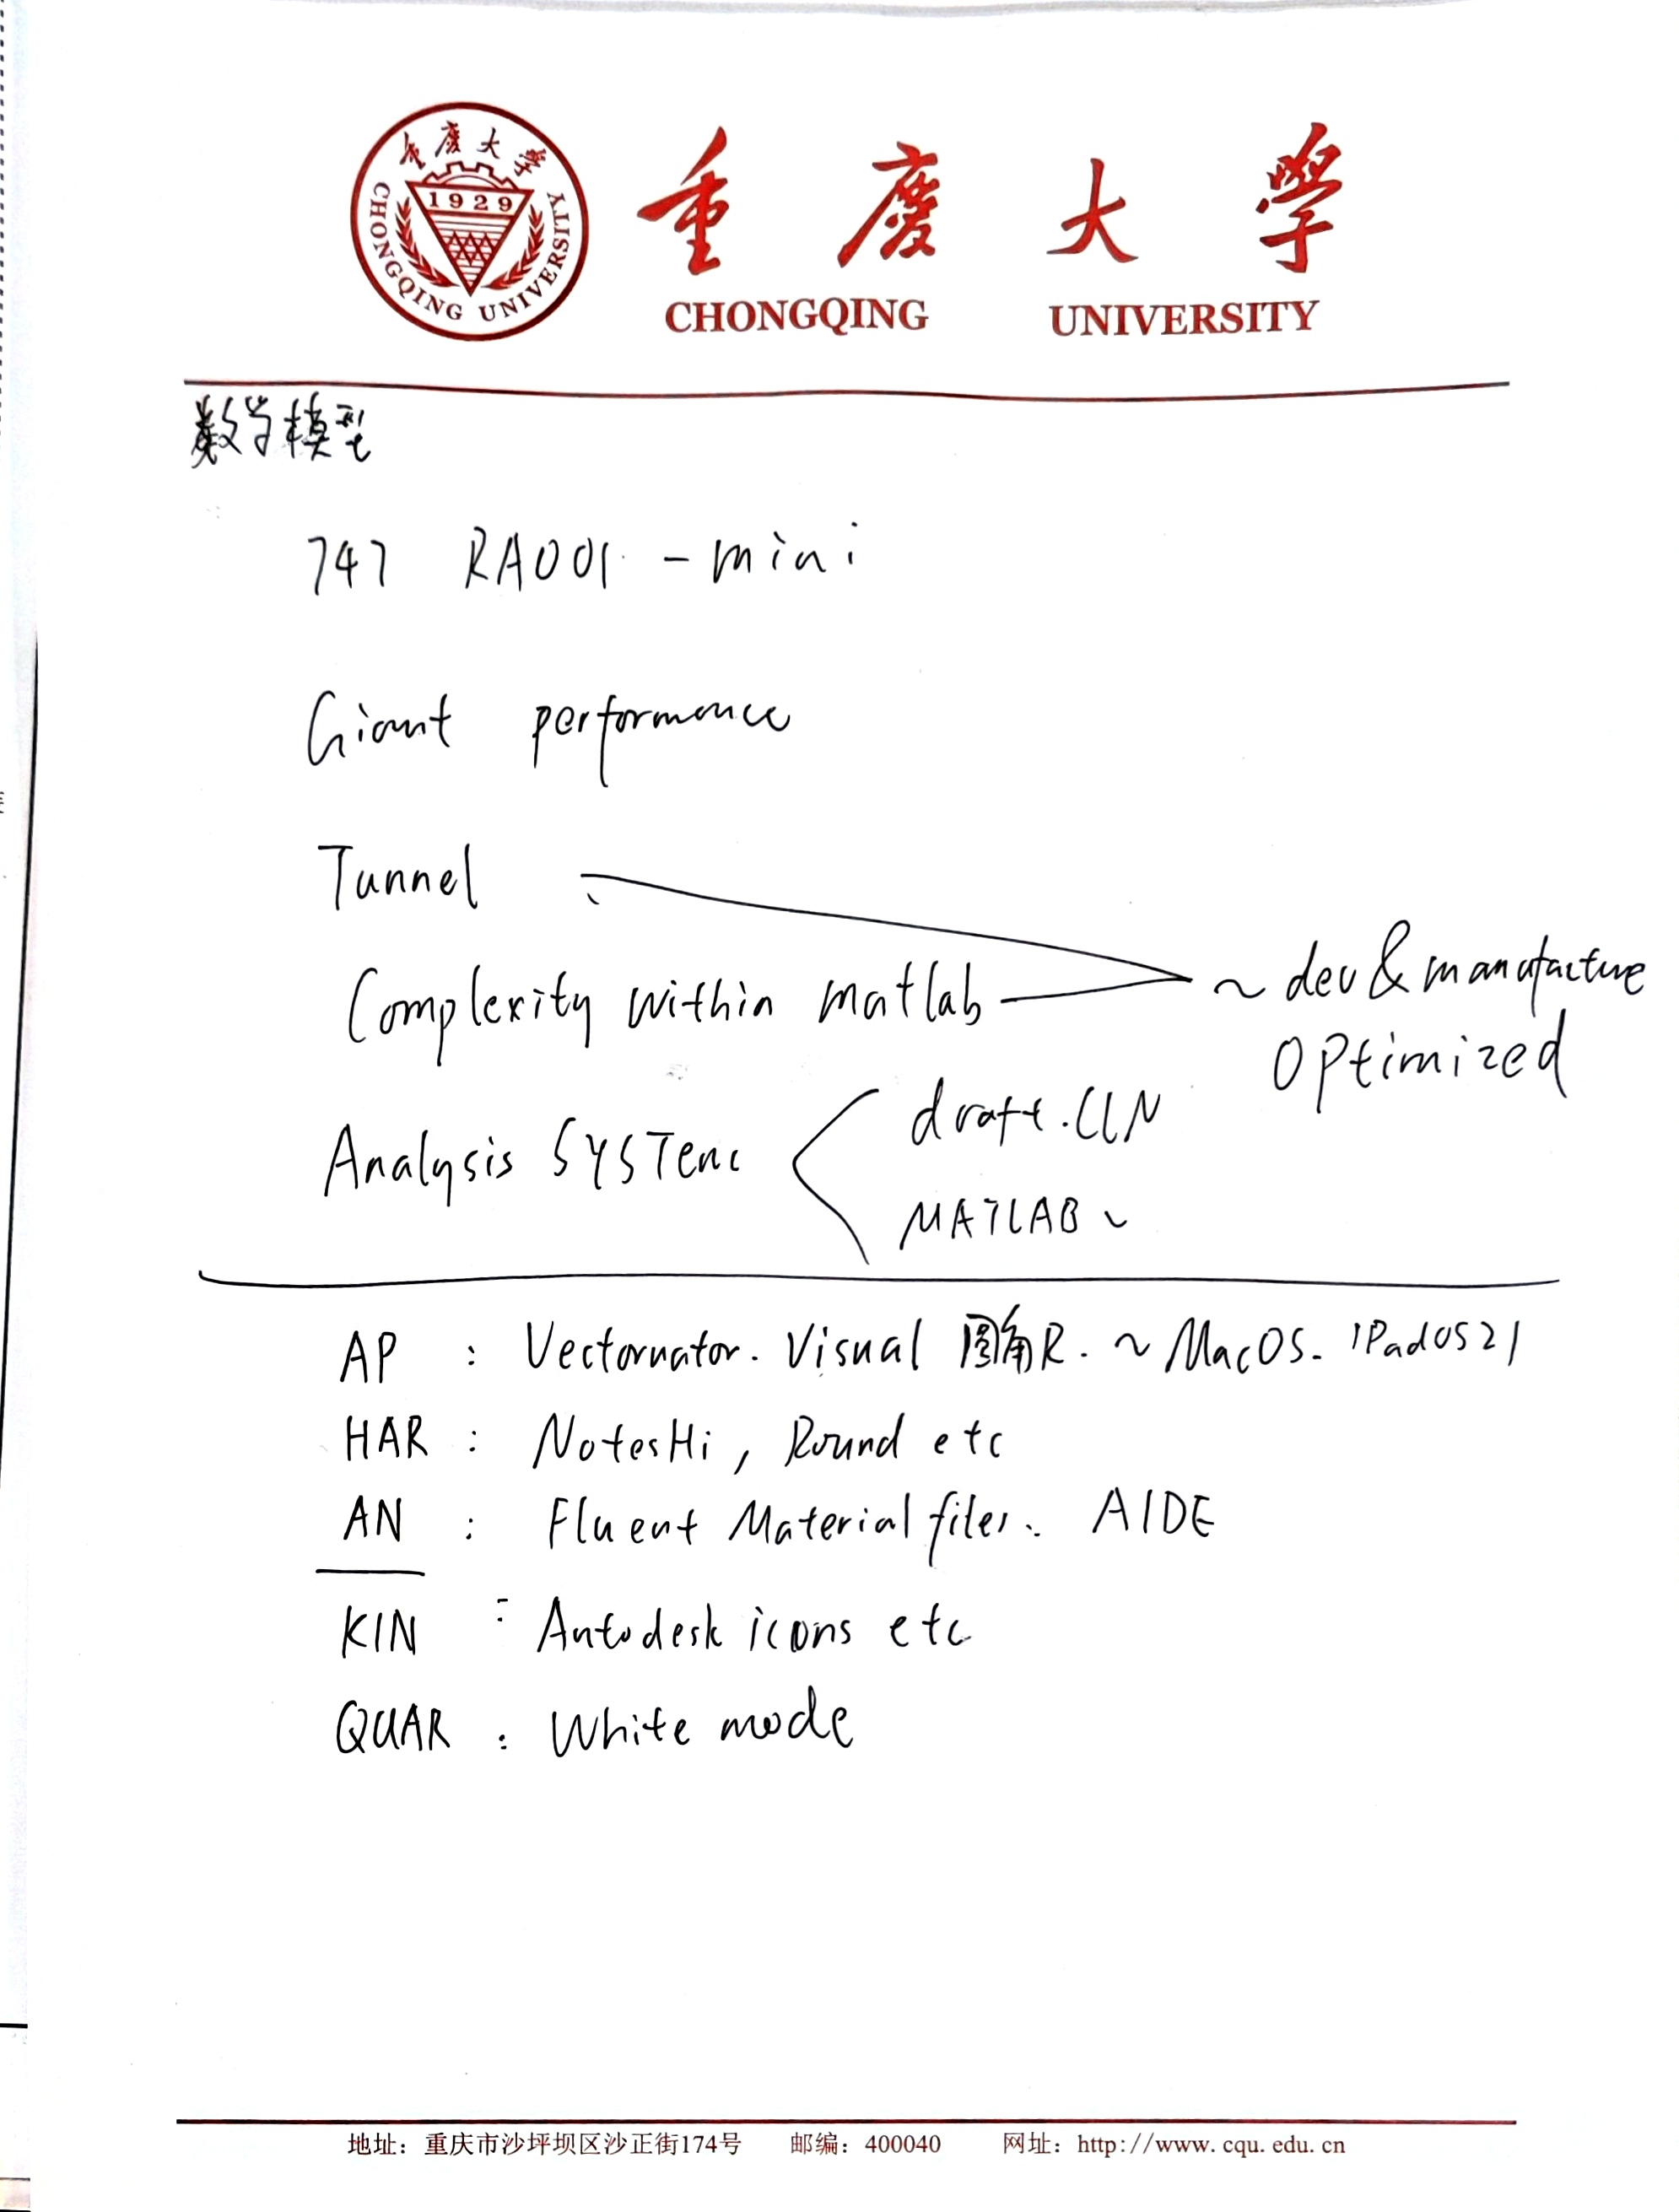 重庆大学
1929
CHONGQING UNIVERSITY
重慶大學
CHONGQING UNIVERSITY
数学模型
747 RA001-mini
Giant performance
Tunnel
~ dev & manufacture
Complexity within matlab
Optimized
draft.CLN
Analysis System
MATLAB ~
AP : Vectornator. Visual 圆角R. ~ MacOS. iPadOS21
HAR : NotesHi, Round etc
AN : Fluent Material files. AIDE
KIN : Autodesk icons etc
QUAR : White mode
地址：重庆市沙坪坝区沙正街174号 邮编：400040 网址：http://www.cqu.edu.cn